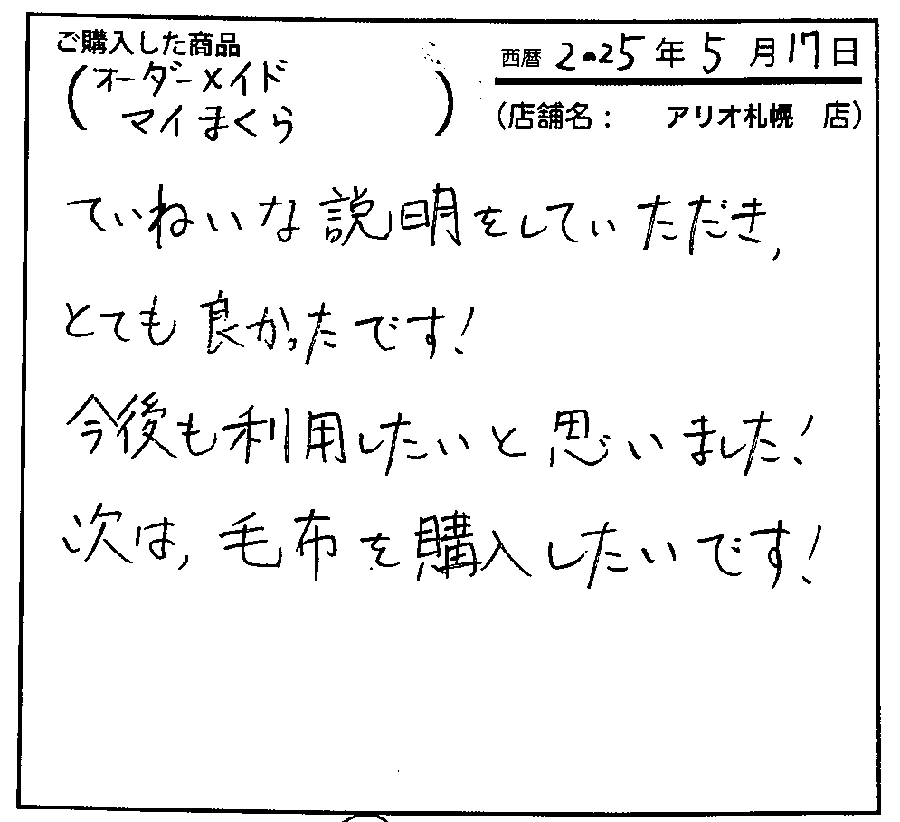 ご購入した商品
(オーダーメイド
マイまくら)
西暦 2025年5月17日
(店舗名: アリオ札幌 店)
ていねいな説明をしていただき、
とても良かったです!
今後も利用したいと思いました!
次は、毛布を購入したいです!